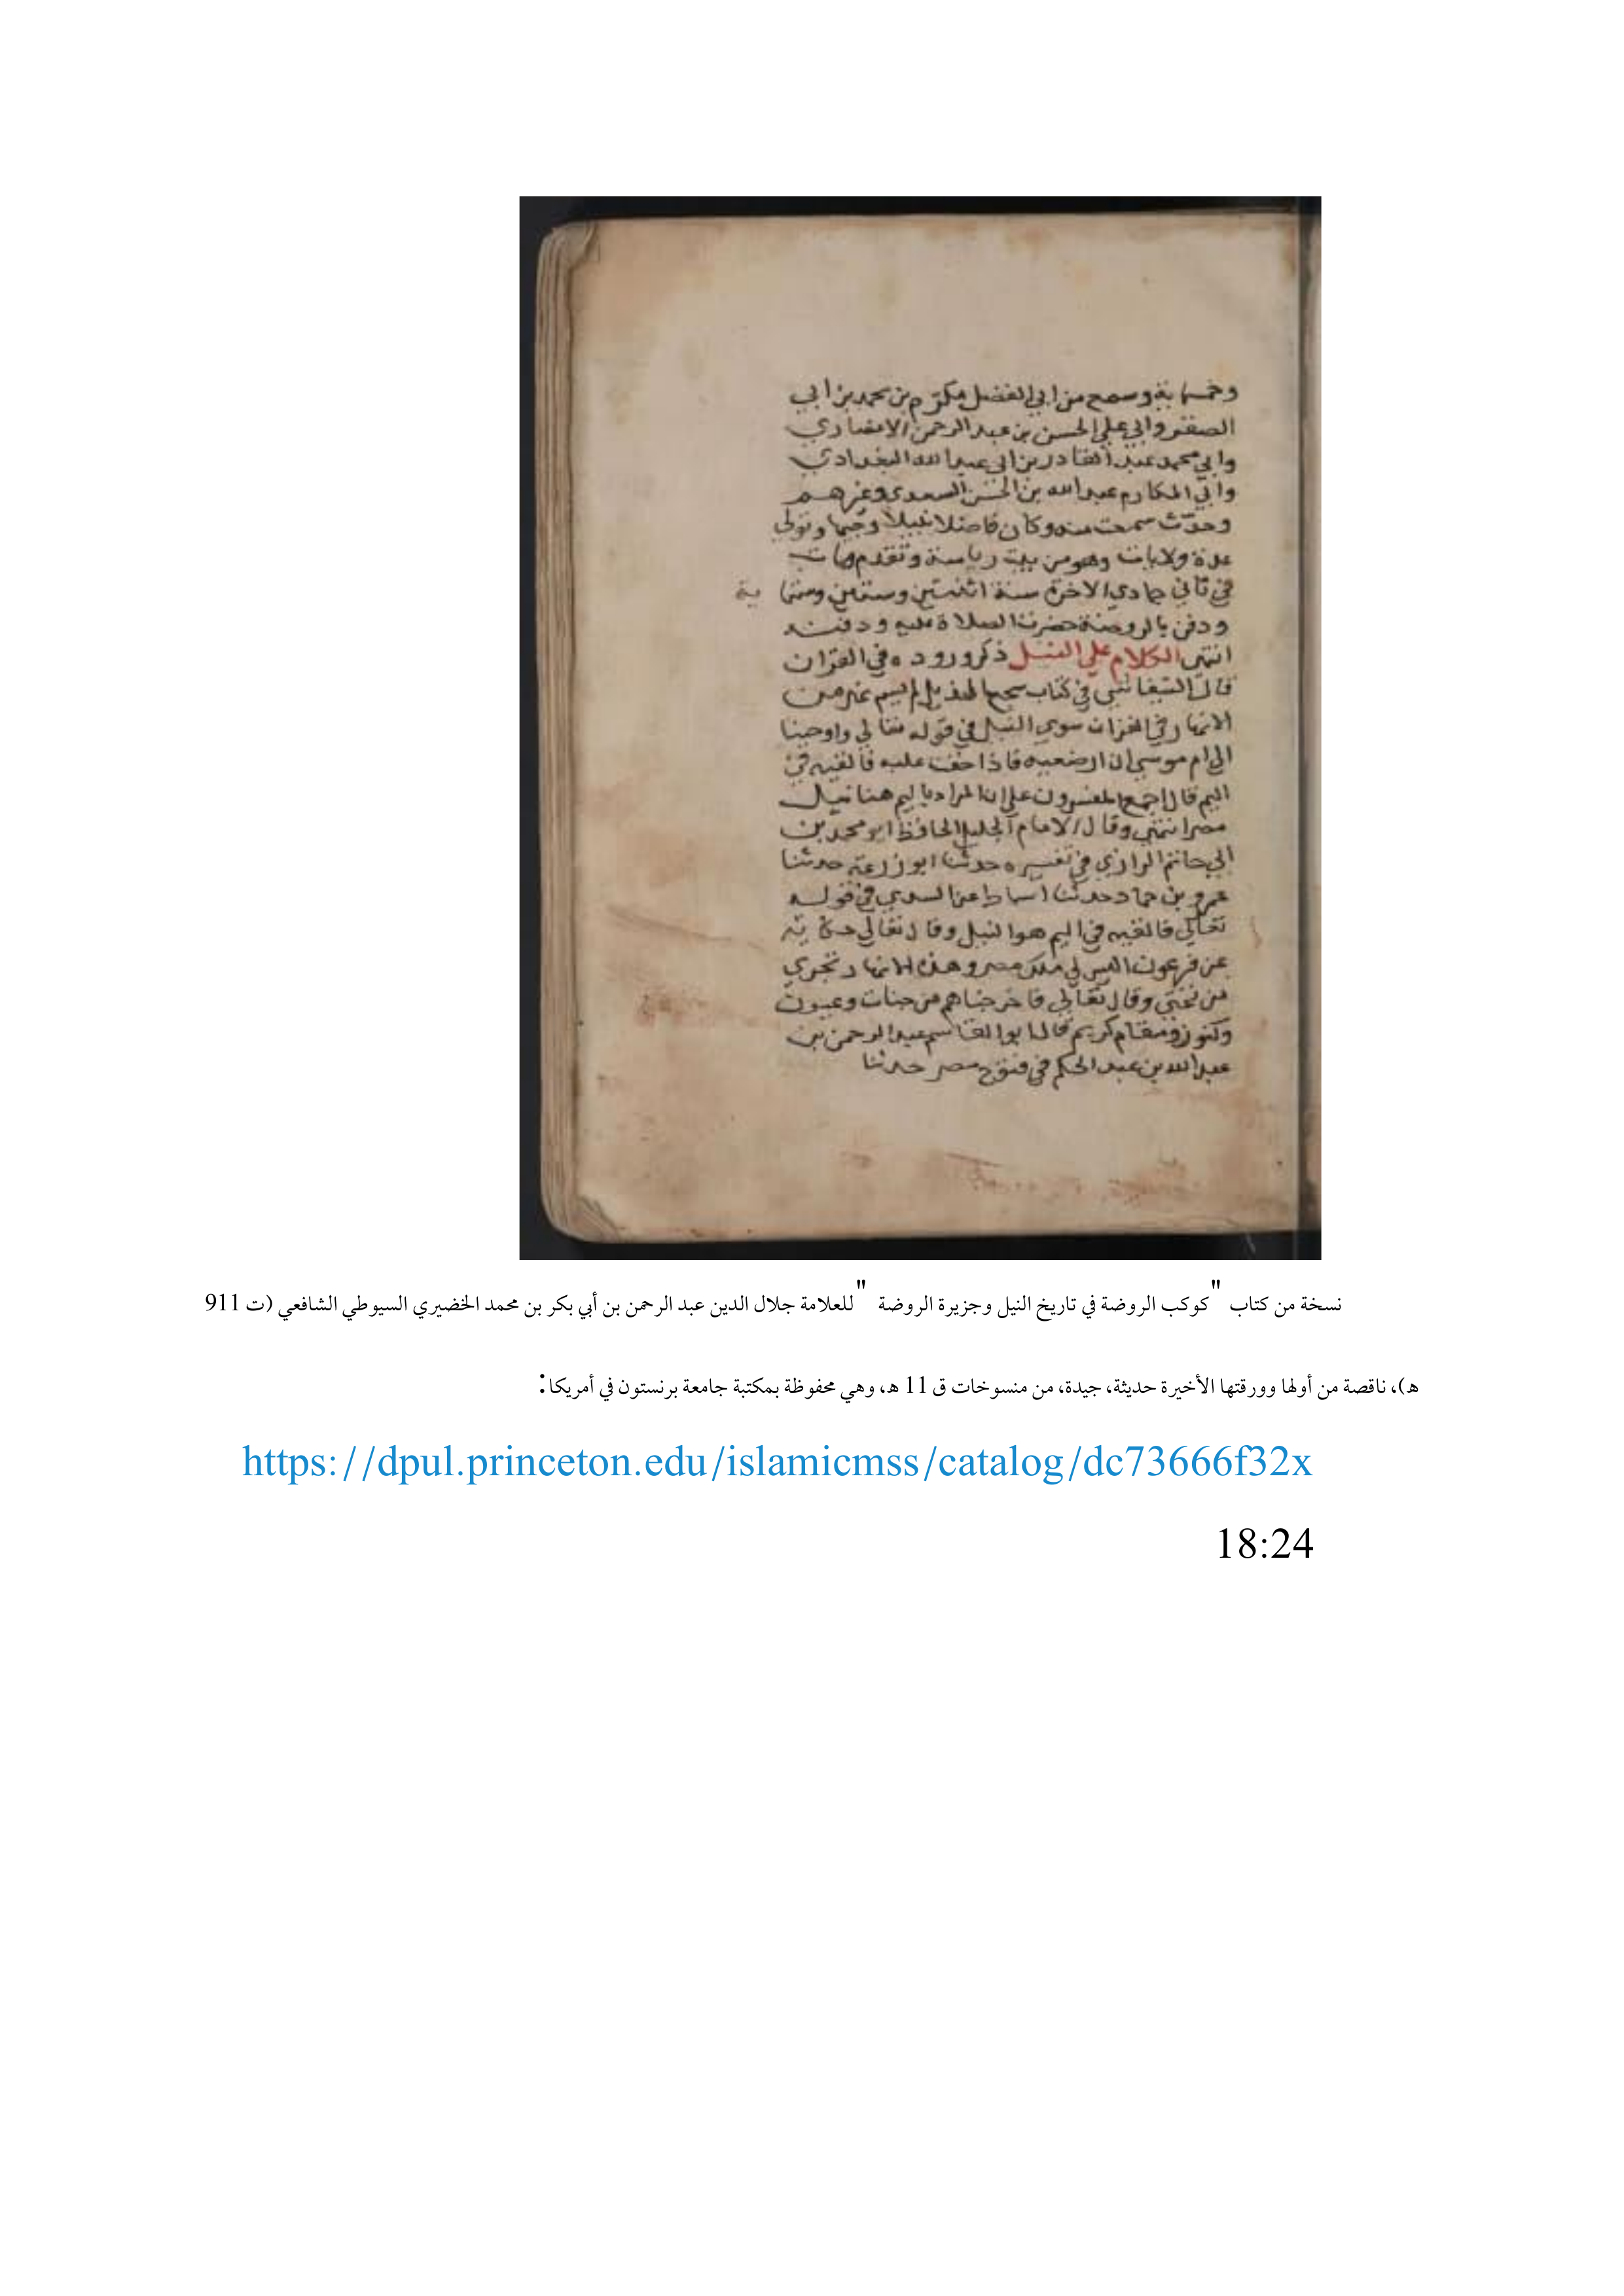 وخمسماية وسمع من ابي الفضل مكرم بن محمد بن ابي
الصقر وابي علي الحسن بن عبد الرحمن الانصاري
وابي محمد عبد القادر بن ابي عبد الله البغدادي
وابي المكارم عبد الله بن الحسن السعدي وغيرهم
وحدث سمعت منه وكان فاضلا نبيلا وجيها وتولي
عدة ولايات وهو من بيت رياسة وتقدم ومات
في ثاني جمادي الاخرة سنة اثنتين وستين وستماية
ودفن بالروضة حضرت الصلاة عليه ودفنه
انتهي الكلام علي النيل ذكر وروده في القران
قال التيفاشي في كتاب سجع الهذيل لم يسم نهر من
الانهار في القران سوي النيل في قوله تعالي واوحينا
الي ام موسي ان ارضعيه فاذا خفت عليه فالقيه في
اليم قال اجمع المفسرون علي ان المراد باليم هنا نيل
مصر انتهي وقال الامام الجليل الحافظ ابو محمد بن
ابي حاتم الرازي في تفسيره حدثنا ابو زرعة حدثنا
عمرو بن حماد حدثنا اسباط عن السدي في قوله
تعالي فالقيه في اليم هو النيل وقال تعالي حكاية
عن فرعون اليس لي ملك مصر وهذه الانهار تجري
من تحتي وقال تعالي فاخرجناهم من جنات وعيون
وكنوز ومقام كريم قال ابو القاسم عبد الرحمن بن
عبد الله بن عبد الحكم في فتوح مصر حدثنا
نسخة من كتاب "كوكب الروضة في تاريخ النيل وجزيرة الروضة "للعلامة جلال الدين عبد الرحمن بن أبي بكر بن محمد الخضيري السيوطي الشافعي (ت 911
هـ)، ناقصة من أولها وورقتها الأخيرة حديثة، جيدة، من منسوخات ق 11 هـ، وهي محفوظة بمكتبة جامعة برنستون في أمريكا:
https://dpul.princeton.edu/islamicmss/catalog/dc73666f32x
18:24